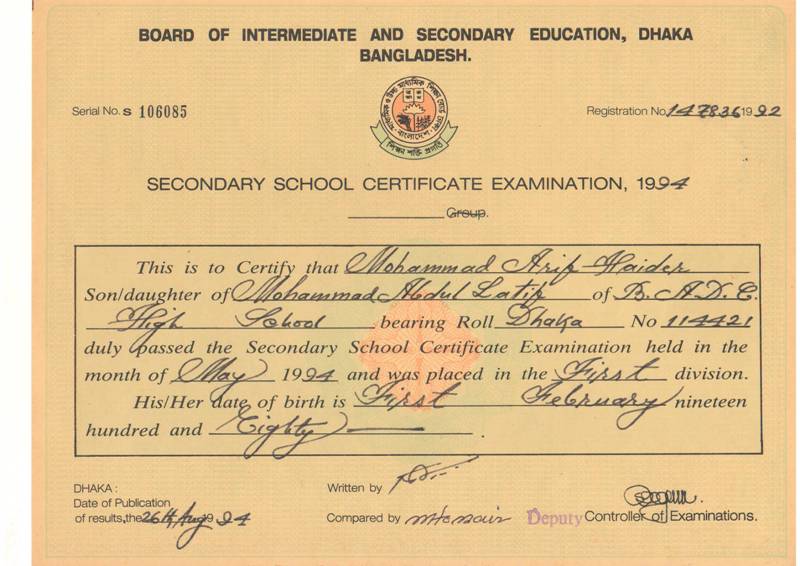 BOARD OF INTERMEDIATE AND SECONDARY EDUCATION, DHAKA
BANGLADESH.
Serial No. S 106085
Registration No. 147836 1992
বাংলাদেশ
শিক্ষা শক্তি প্রগতি
SECONDARY SCHOOL CERTIFICATE EXAMINATION, 1994
Group.
This is to Certify that Mohammad Arif Haider
Son/daughter of Mohammad Abdul Latif of B. A. D. C.
High School bearing Roll Dhaka No 114421
duly passed the Secondary School Certificate Examination held in the
month of May 1994 and was placed in the First division.
His/Her date of birth is First February nineteen
hundred and Eighty.
DHAKA :
Date of Publication
of results, the 26th Aug 1994
Written by
Compared by
Deputy Controller of Examinations.